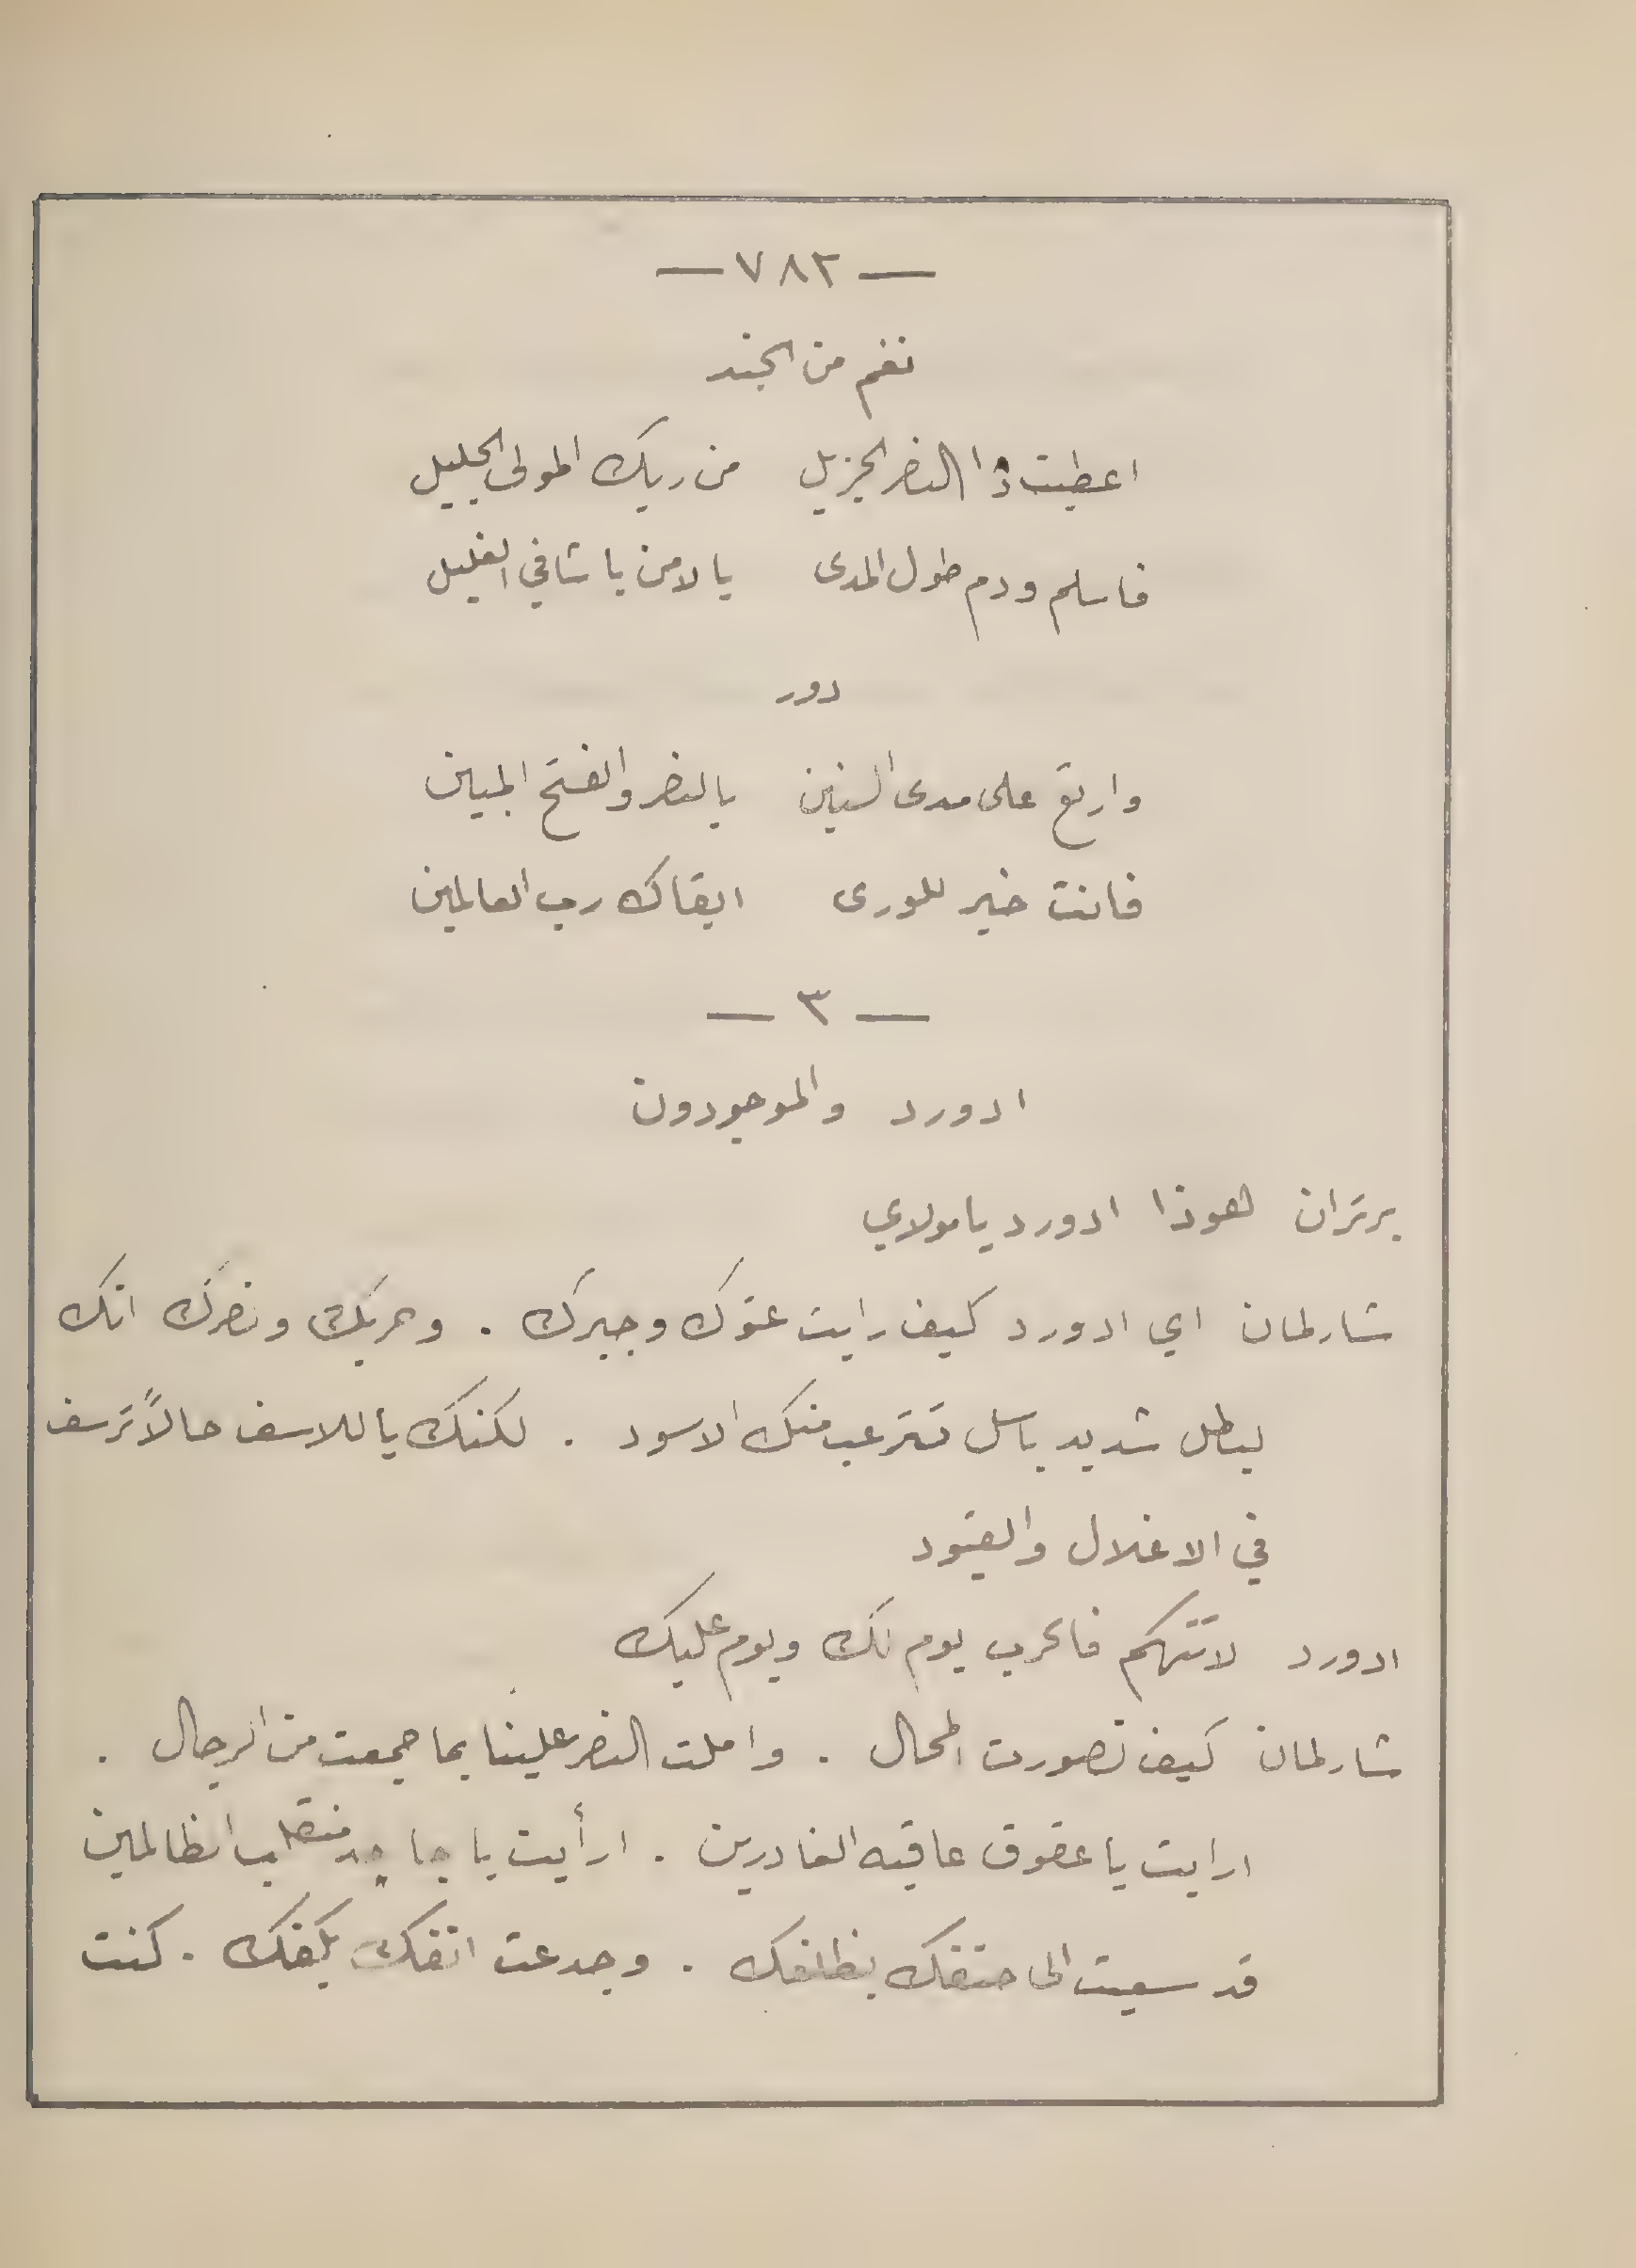 — ٧٨٢ —
نغم من الجند
اعطيت ذا النصر الجزيل من ربك المولى الجليل
فاسلم ودم طول المدى بالامن يا شافي الغليل
دور
وارتق على مدى السنين بالنصر والفتح المبين
فانت خير للورى ابقاك رب العالمين
— ٣ —
ادورد والموجودون
برتران هوذا ادورد يا مولاي
شارلمان اي ادورد كيف رايت عتوك وجبرك . وحربك ونصرك انك
لبطل شديد باسل تترعب منك الاسود . لكنك ياللاسف حالاً ترسف
في الاغلال والقيود
ادورد لا تتهكم فالحرب يوم لك ويوم عليك
شارلمان كيف تصورت المحال . واملت النصر علينا بما جمعت من الرجال .
ارايت يا عقوق عاقبه الغادرين . ارأيت يا جاحد منقلب الظالمين
قد سعيت الى حتفك بظلفك . وجدعت انفك بكفك . كنت